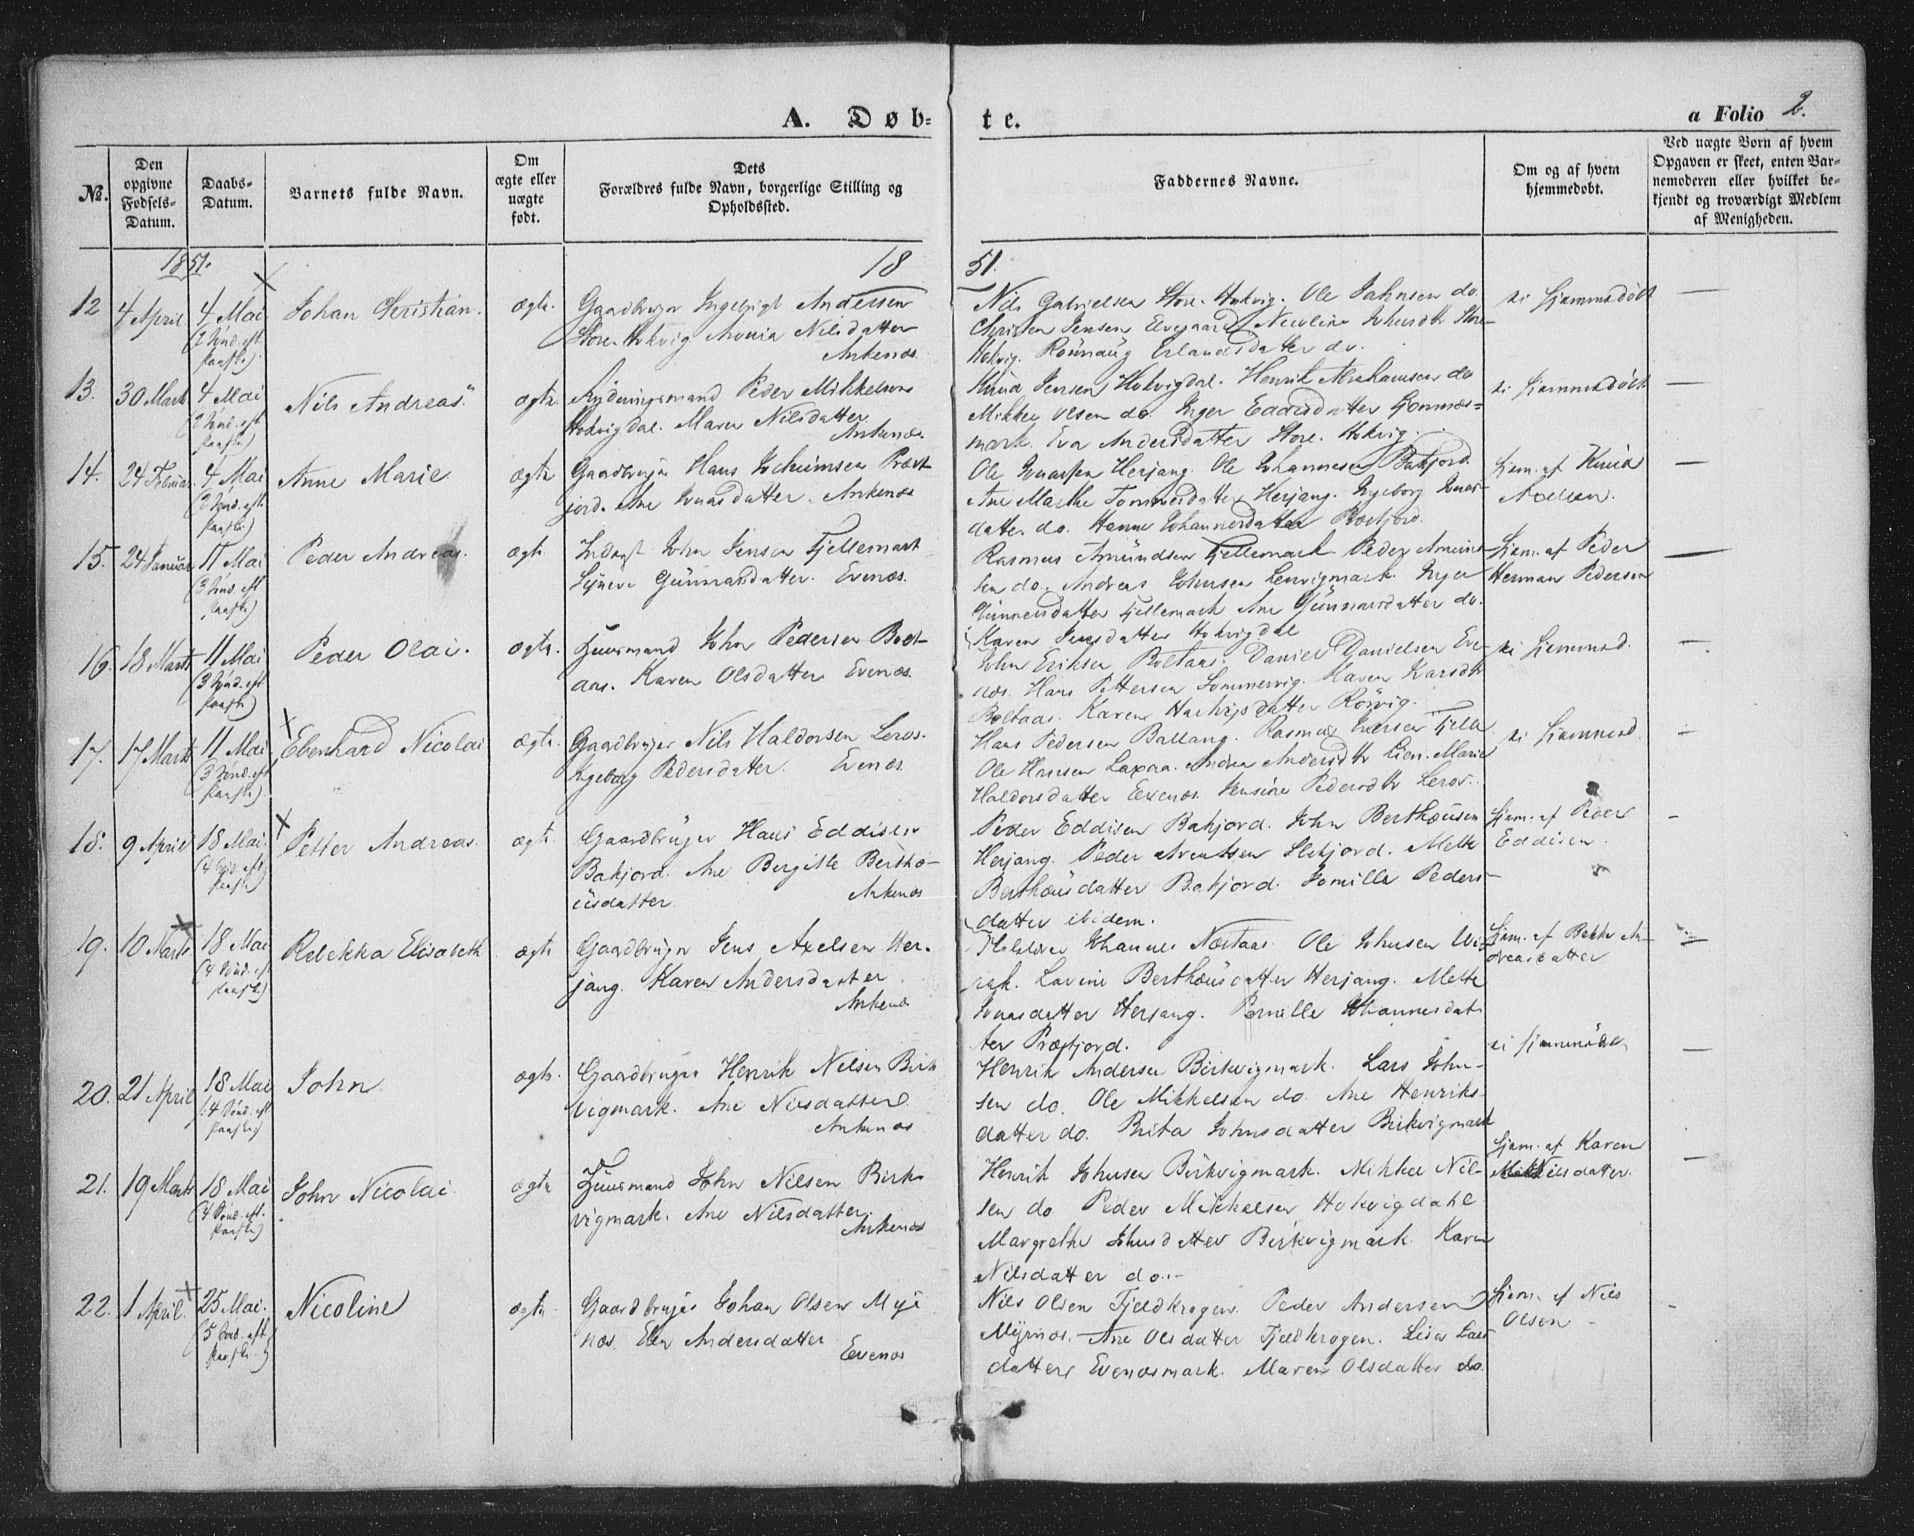 A. Døb-
te.
a Folio 2.
No.
Den opgivne Fødsels-Datum.
Daabs-Datum.
Barnets fulde Navn.
Om ægte eller uægte født.
Dets Forældres fulde Navn, borgerlige Stilling og Opholdssted.
Faddernes Navne.
Om og af hvem hjemmedøbt.
Ved uægte Børn af hvem Opgaven er skeet, enten Barnemoderen eller hvilket bekjendt og troværdigt Medlem af Menigheden.
1851.
18
51.
12 4 April 4 Mai (2 Sønd. eft. Paaske) Johan Christian. ægte.
Gaardbruger Ingebrigt Andersen
Store-Hokvig Nilsdatter
Ankenæs
Nils Gabrielsen Store-Hokvig. Ole Johnsen do.
Christen Jensen Elvegaard Nicoline Johnsdtr Store-
Hokvig. Rønnaüg Erlandsdatter do.
ei hjemmedøbt
13. 30 Marts 4 Mai (2 Sønd. eft. Paaske) Nils Andreas ægte
Rydningsmand Peder Mikkelsen
Hokvigdal. Maren Nilsdatter
Ankenæs.
Knud Jensen Hokvigdal. Henrik Abrahamsen do
Mikkel Olsen do. Inger Eddisdatter
mark. Eva Andersdatter Store-Hokvig.
ei hjemmedøbt
14. 24 Februar 4 Mai (2 Sønd. eft. Paaske) Anne Marie ægte
Gaardbruger Hans Jochumsen Præst-
jord. Ane datter. Ankenæs
Ole Herjang. Ole Johannesen
Ane Marthe Tommesdatter Herjang. Ingeborg
datter do. Hanne Johannesdatter
hjem. af Knud
15. 24 Januar 11 Mai (3 Sønd. eft. Paaske) Peder Andreas. ægte.
John Jensen Fjellemark
Günnarsdatter. Evenæs.
Rasmus Amündsen Fjellemark Peder Amünd-
sen do. Andreas Johnsen Lenvigmark. Inger
Günnersdatter Fjellemark Ane Günnarsdatter do.
Karen Jensdatter Hokvigdal
hjem. af Peder
Herman Pedersen
16. 18 Marts 11 Mai (3 Sønd. eft. Paaske) Peder Olai. ægte.
Huusmand John Pedersen Bolt-
aas. Karen Olsdatter Evenæs.
John Eriksen Boltaas. Daniel Danielsen Eve-
næs. Hans Pettersen Sommervig. Maren
Boltaas. Karen datter Rørvig.
ei hjemmed.
17. 17 Marts 11 Mai (3 Sønd. eft. Paaske) Eberhard Nicolai ægte.
Gaardbruger Nils Haldorsen Leros.
Ingeborg Pedersdatter. Evenæs
Hans Pedersen Ballang. Rasmus
Ole Hansen Laxaa. Andrea Andersdtr Lien. Marie
Haldorsdatter Evenæs. Jensine Pedersdtr Leros.
ei hjemmed.
18. 9 April 18 Mai. (4 Sønd. eft. Paaske) Petter Andreas. ægte.
Gaardbruger Hans Eddisen
Bakjord. Ane Bergitte Bertho-
üsdatter. Ankenæs
Peder Eddisen Bakjord. John Berthæüsen
Herjang. Peder Arentsen Bakjord. Mette
Berthæüsdatter Bakjord. Pernille Peders-
datter ibidem.
hjem. af Peder
Eddisen.
19. 10 Marts 18 Mai (4 Sønd. eft. Paaske) Rebekka Elisabeth ægte
Gaardbruger Jens Axelsen Her-
jang. Karen Andersdatter
Ankenæs
Johannes Næstaas. Ole Johnsen
Lavine Berthæüsdatter Herjang. Mette
datter Herjang. Pernille Johannesdat-
ter Præstjord.
hjem. af An-
dreasdatter
20. 21 April 18 Mai (4 Sønd. eft. Paaske) John ægte.
Gaardbruger Henrik Nilsen Birk-
vigmark. Ane Nilsdatter
Ankenæs
Henrik Andersen Birkvigmark. Lars John-
sen do. Ole Mikkelsen do. Ane Henriks-
datter do. Brita Johnsdatter Birkvigmark
ei hjemmedøbt
21. 19 Marts 18 Mai (4 Sønd. eft. Paaske) John Nicolai. ægte
Huusmand John Nilsen Birk-
vigmark. Ane Nilsdatter.
Ankenæs
Henrik Johnsen Birkvigmark. Mikkel Nil-
sen do. Peder Mikkelsen Hokvigdahl
Margrethe Johnsdatter Birkvigmark. Karen
Nilsdatter do.
hjem. af Karen
Nilsdatter.
22. 1 April. 25 Mai. (5 Sønd. eft. Paaske.) Nicoline ægte
Gaardbruger Johan Olsen Myr-
næs. Elen Andersdatter
Evenæs
Nils Olsen Fjeldkrogen. Peder Andersen
Myrnæs. Ane Olsdatter Fjeldkrogen. Lisa Lars-
datter Evenæsmark. Maren Olsdatter do.
hjem. af Nils
Olsen